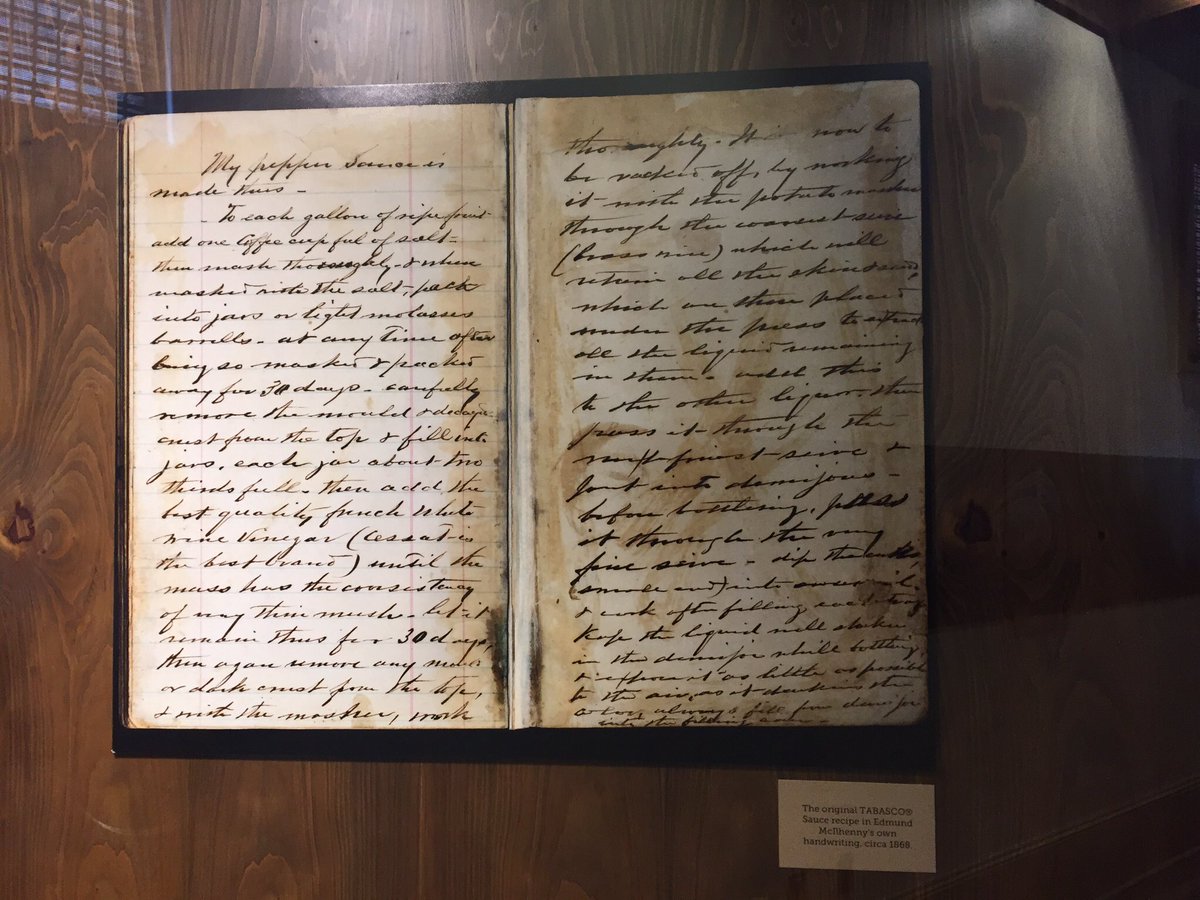 My pepper sauce is
made thus -
- To each gallon of ripe fruit
add one Coffee cup ful of salt -
then mash thoroughly & when
mashed with the salt, pack
into jars or tight molasses
barrells - at any time after
being so mashed & packed
away for 30 days - carefully
remove the mould &
crust from the top & fill into
jars, each jar about two
thirds full - then add the
best quality french white
wine Vinegar (Cessat is
the best brand) until the
mass has the consistency
of very thin mush - let it
remain thus for 30 days,
then again remove any mould
or dark crust from the top,
& with the masher, work
thoroughly - It is now to
be racked off, by working
it with the potato masher
through the coarsest sieve
(brass wire) which will
retain all the skin & seeds
which are then placed
under the press to extract
all the liquid remaining
in them - add this
to the other liquor, then
pass it through the
next finest sieve &
put into demijons -
before bottling, pass
it through the very
fine sieve - dip the corks,
(small end) into sweet oil -
& cork after filling each bottle
Keep the liquid well shaken
in the demijon whilst bottling,
& expose it as little as possible
to the air, as it darkens the
color, always fill from demijon
into the filling
The original TABASCO®
Sauce recipe in Edmund
McIlhenny's own
handwriting, circa 1868.